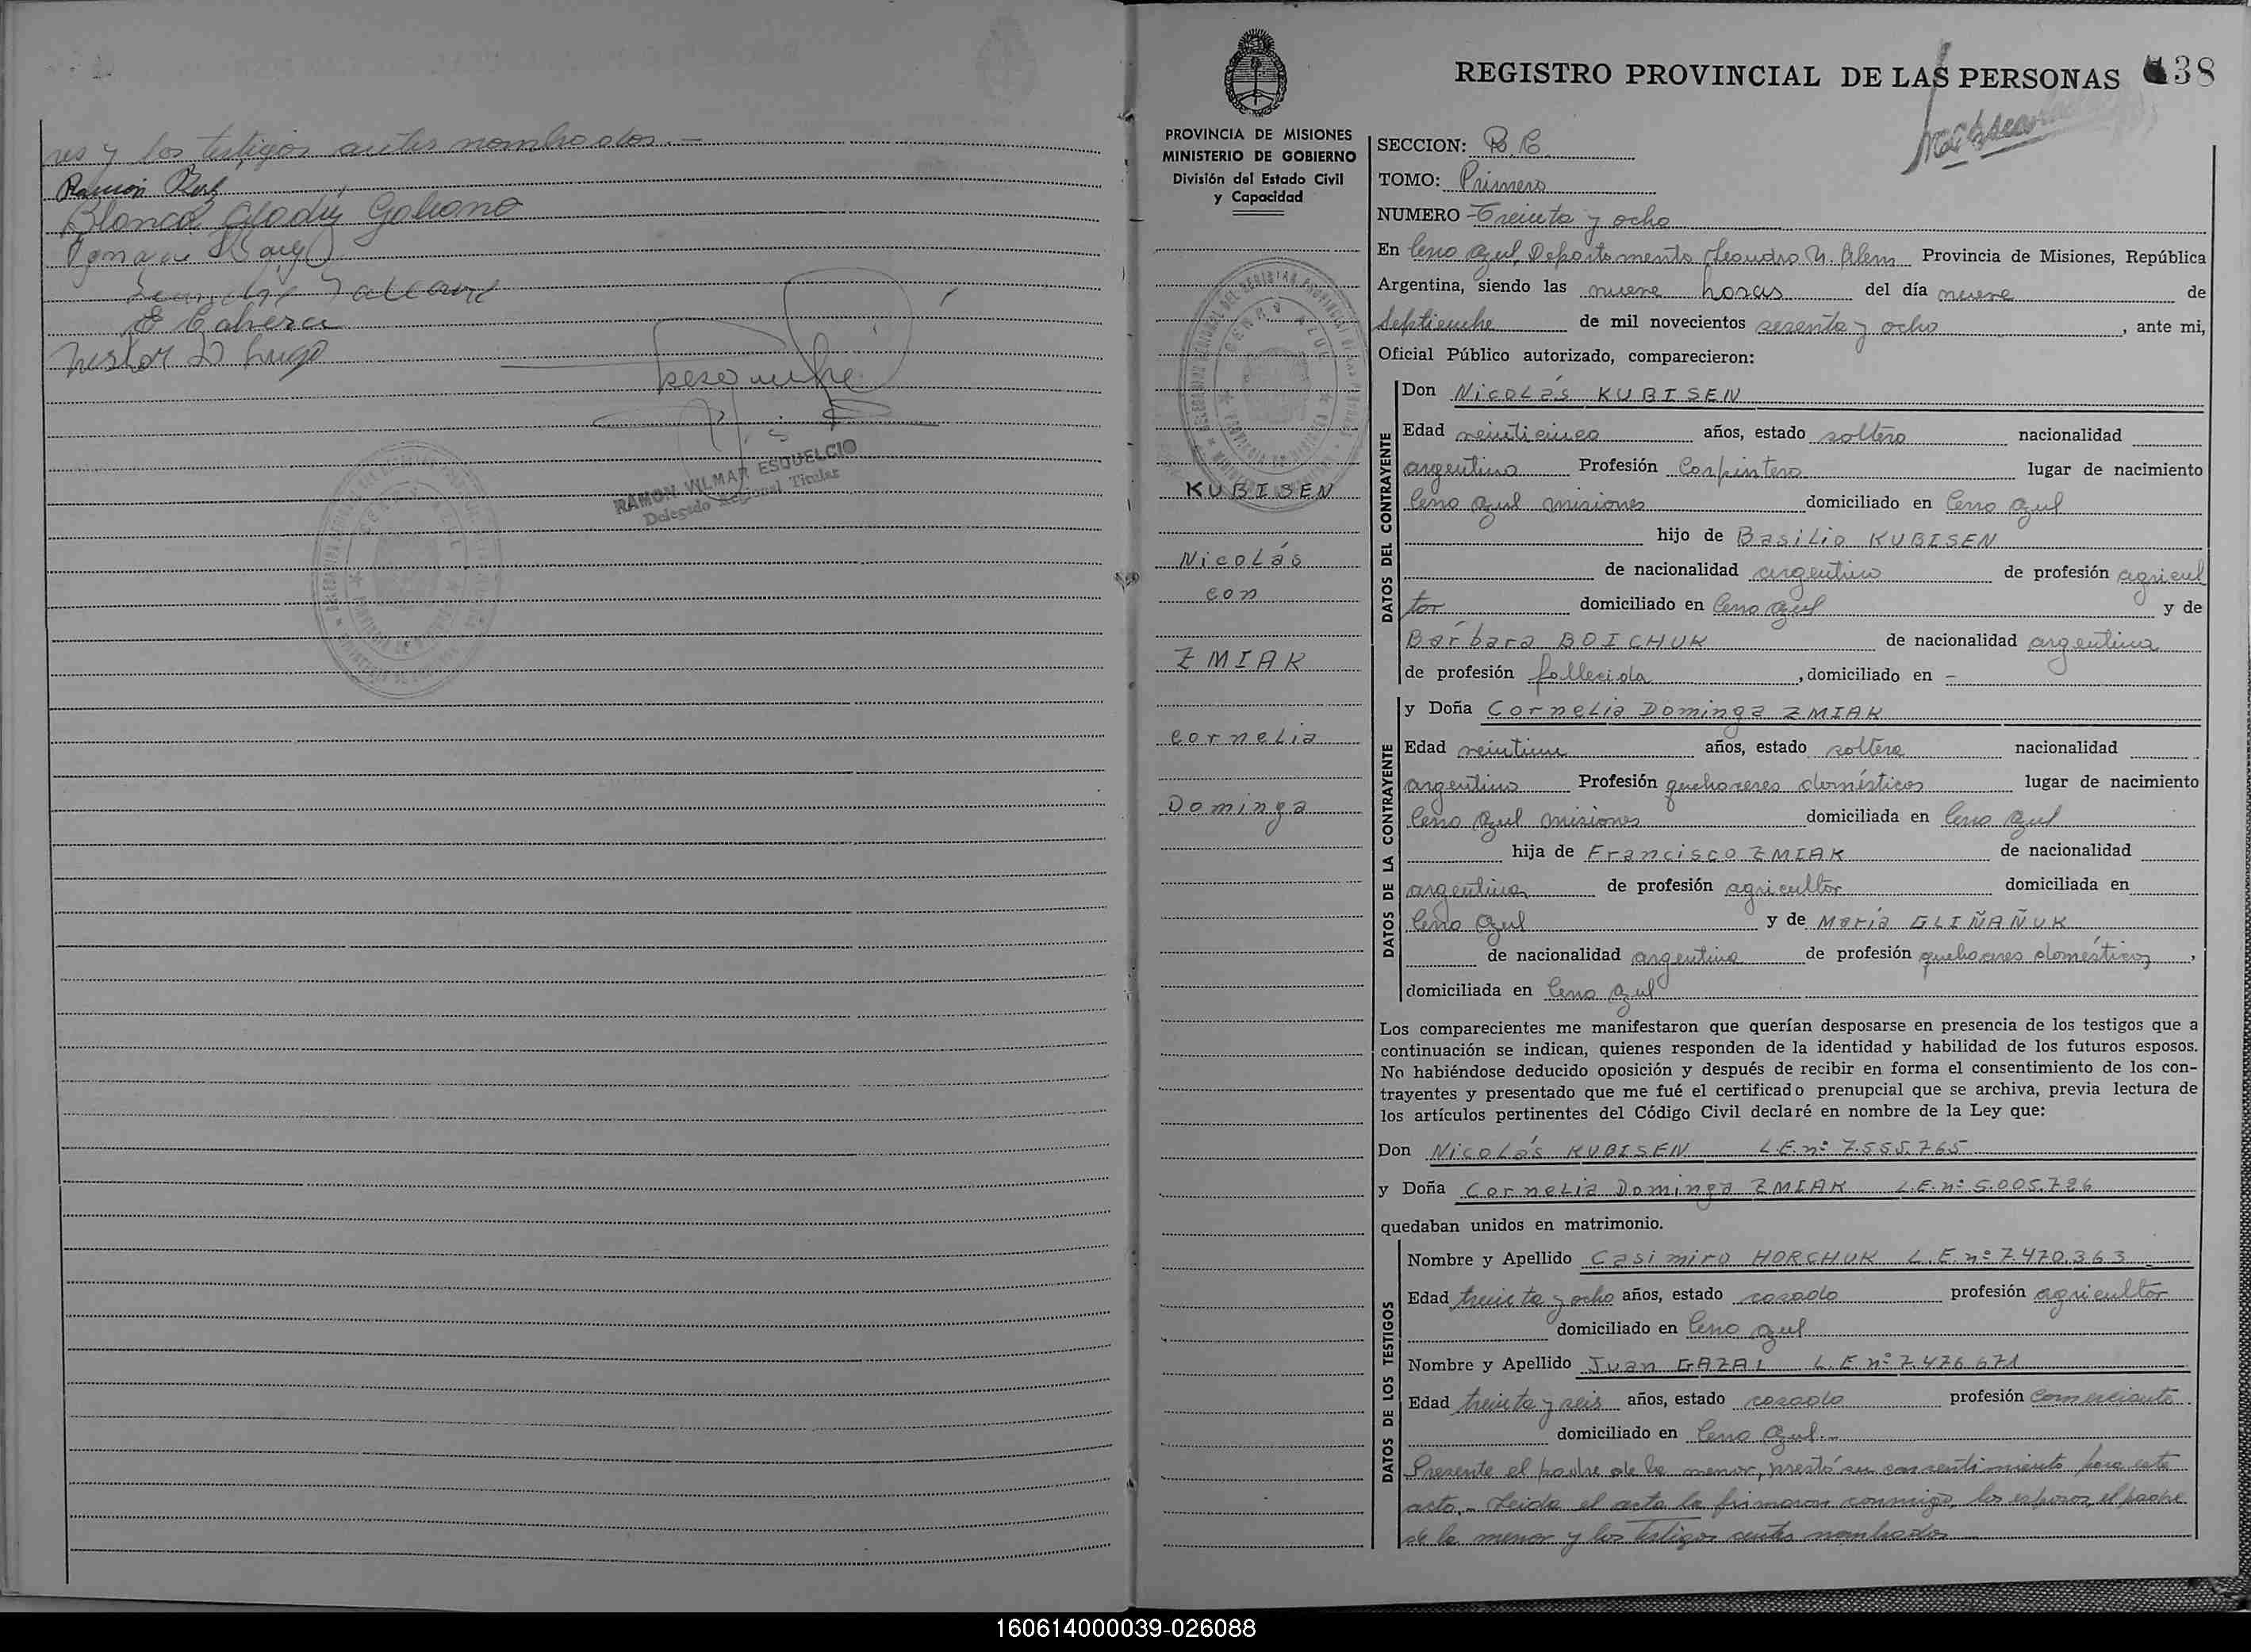 res y los testigos antes nombrados.-
Ramón
Blanca Gladiz Galeano
E Cabrera
Nestor D Lugo
RAMON VILMAR ESQUELCIO
Delegado Regional Titular
REGISTRO PROVINCIAL DE LAS PERSONAS 38
PROVINCIA DE MISIONES
MINISTERIO DE GOBIERNO
División del Estado Civil
y Capacidad
KUBISEN
Nicolás
con
ZMIAK
Cornelia
Dominga
SECCION: B.C.
TOMO: Primero
NUMERO Treinta y ocho
En Cerro Azul, Departamento Leandro N. Alem Provincia de Misiones, República
Argentina, siendo las nueve horas del día nueve de
Septiembre de mil novecientos sesenta y ocho, ante mi,
Oficial Público autorizado, comparecieron:
DATOS DEL CONTRAYENTE
Don Nicolás KUBISEN
Edad veinticinco años, estado soltero nacionalidad
argentino Profesión Carpintero lugar de nacimiento
Cerro Azul Misiones domiciliado en Cerro Azul
hijo de Basilio KUBISEN
de nacionalidad argentino de profesión agricul
tor domiciliado en Cerro Azul y de
Bárbara BOICHUK de nacionalidad argentina
de profesión fallecida, domiciliado en -
DATOS DE LA CONTRAYENTE
y Doña Cornelia Dominga ZMIAK
Edad veintiun años, estado soltera nacionalidad
argentina Profesión quehaceres domésticos lugar de nacimiento
Cerro Azul Misiones domiciliada en Cerro Azul
hija de Francisco ZMIAK de nacionalidad
argentina de profesión agricultor domiciliada en
Cerro Azul y de María GLIÑAÑUK
de nacionalidad argentina de profesión quehaceres domésticos,
domiciliada en Cerro Azul
Los comparecientes me manifestaron que querían desposarse en presencia de los testigos que a
continuación se indican, quienes responden de la identidad y habilidad de los futuros esposos.
No habiéndose deducido oposición y después de recibir en forma el consentimiento de los con-
trayentes y presentado que me fué el certificado prenupcial que se archiva, previa lectura de
los artículos pertinentes del Código Civil declaré en nombre de la Ley que:
Don Nicolás KUBISEN L.E. nº 7.555.765
y Doña Cornelia Dominga ZMIAK L.E. nº 5.005.786
quedaban unidos en matrimonio.
DATOS DE LOS TESTIGOS
Nombre y Apellido Casimiro HORCHUK L.E. nº 7.470.363
Edad treinta y ocho años, estado casado profesión agricultor
domiciliado en Cerro Azul
Nombre y Apellido Juan GAZAL L.E. nº 7.476.671
Edad treinta y seis años, estado casado profesión comerciante
domiciliado en Cerro Azul.-
Presente el padre de la menor, prestó su consentimiento para este
acto.- Leida el acta la firmaron conmigo, los esposos, el padre
de la menor y los testigos antes nombrados
160614000039-026088